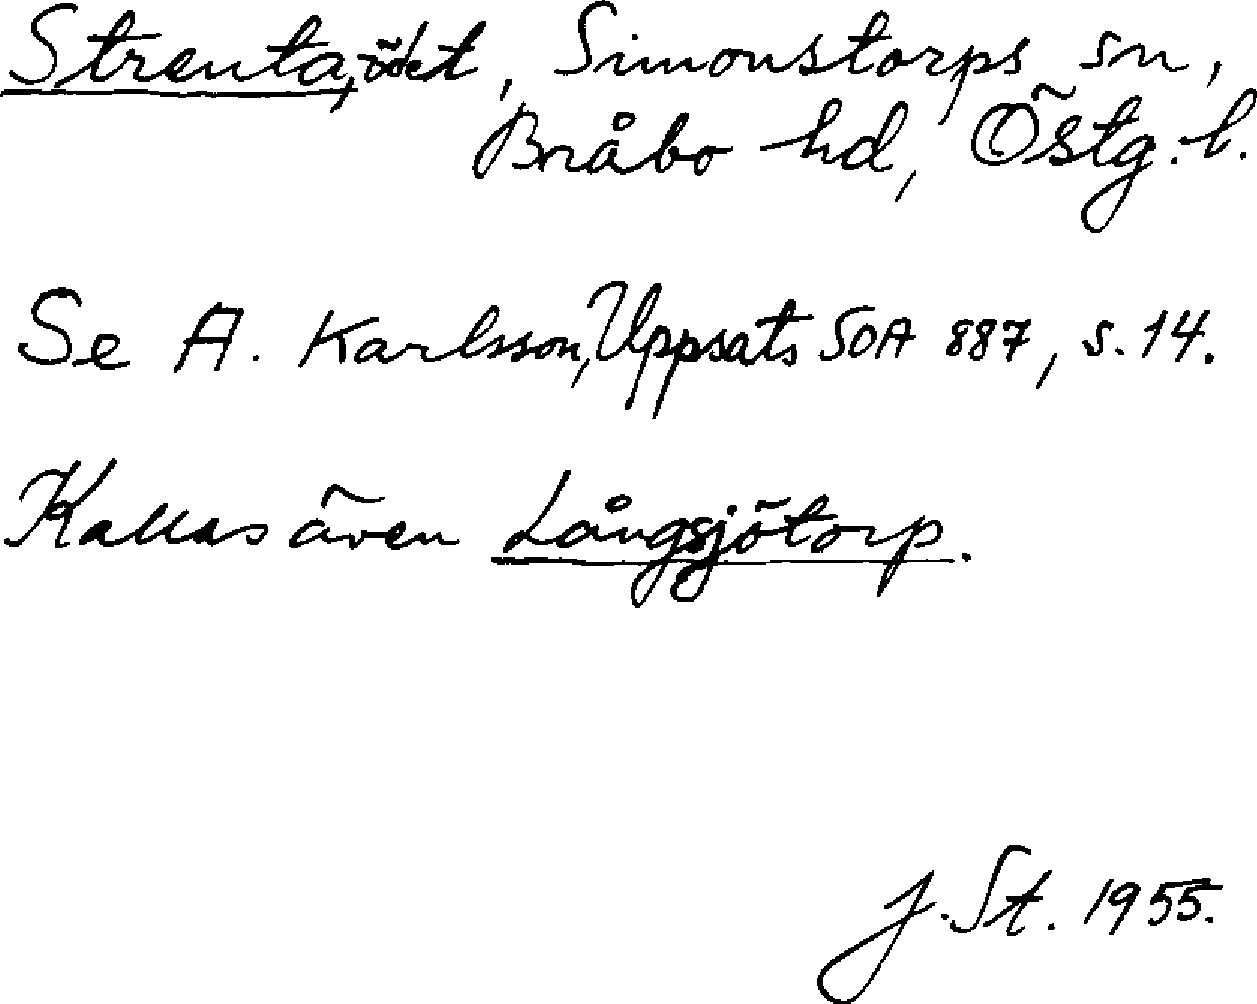 Strenta, ödet, Simonstorps sn,
Bråbo hd, Östg. l.
Se A. Karlsson, Uppsats SOA 887, s. 14.
Kallas även Långsjötorp.
J. St. 1955.